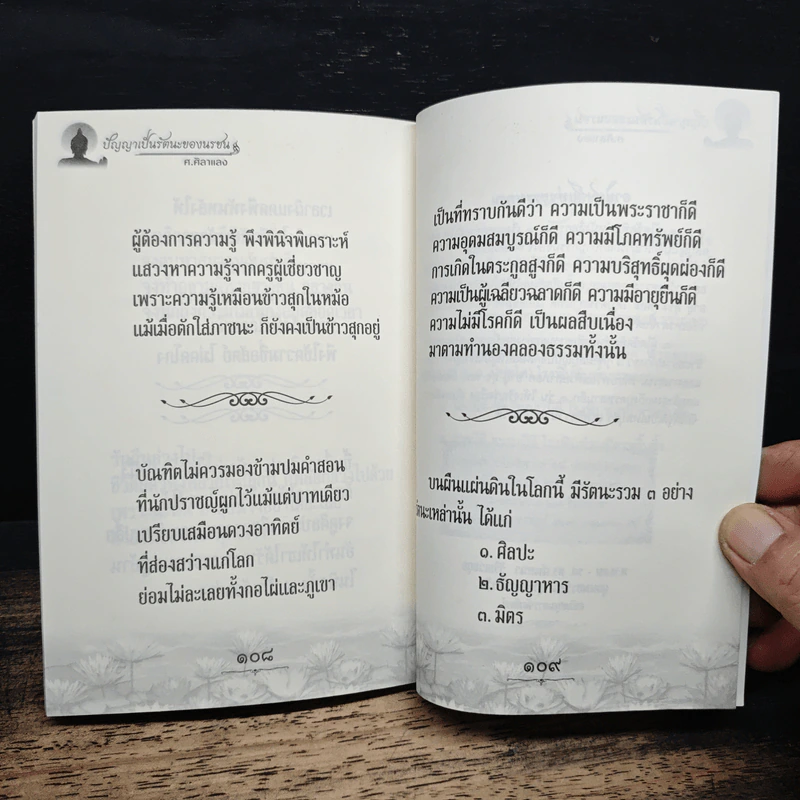 ปัญญาเป็นรัตนะของนรชน
ศ.ศิลาแลง
ผู้ต้องการความรู้ พึงพินิจพิเคราะห์
แสวงหาความรู้จากครูผู้เชี่ยวชาญ
เพราะความรู้เหมือนข้าวสุกในหม้อ
แม้เมื่อตักใส่ภาชนะ ก็ยังคงเป็นข้าวสุกอยู่
บัณฑิตไม่ควรมองข้ามปมคำสอน
ที่นักปราชญ์ผูกไว้แม้แต่บาทเดียว
เปรียบเสมือนดวงอาทิตย์
ที่ส่องสว่างแก่โลก
ย่อมไม่ละเลยทั้งกอไผ่และภูเขา
๑๐๘
เป็นที่ทราบกันดีว่า ความเป็นพระราชาก็ดี
ความอุดมสมบูรณ์ก็ดี ความมีโภคทรัพย์ก็ดี
การเกิดในตระกูลสูงก็ดี ความบริสุทธิ์ผุดผ่องก็ดี
ความเป็นผู้เฉลียวฉลาดก็ดี ความมีอายุยืนก็ดี
ความไม่มีโรคก็ดี เป็นผลสืบเนื่อง
มาตามทำนองคลองธรรมทั้งนั้น
บนผืนแผ่นดินในโลกนี้ มีรัตนะรวม ๓ อย่าง
รัตนะเหล่านั้น ได้แก่
๑. ศิลปะ
๒. ธัญญาหาร
๓. มิตร
๑๐๙